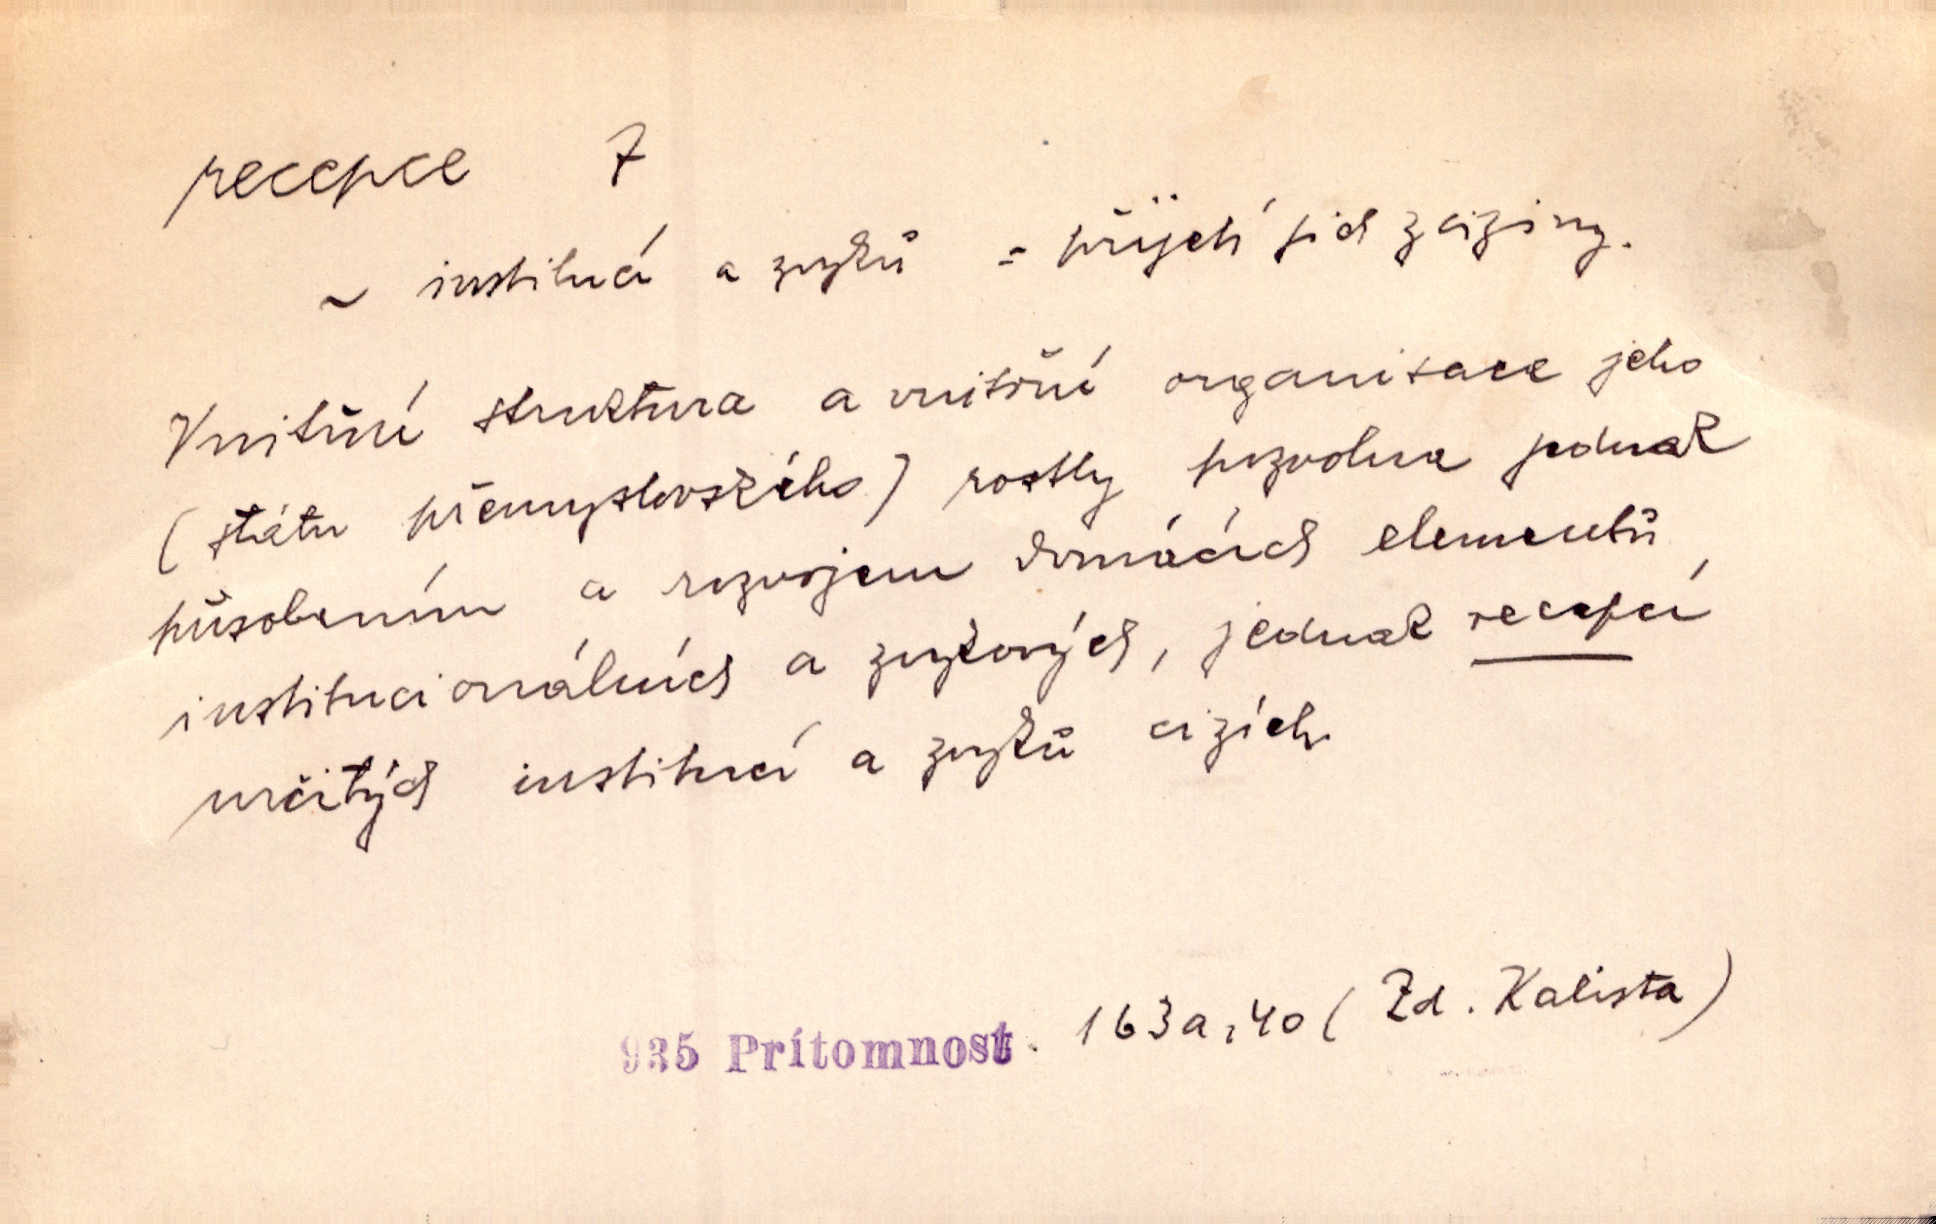 recepce 7
~ institucí a zvyků = přijetí jich z ciziny.
Vnitřní struktura a vnitřní organisace jeho
(státu přemyslovského) rostly pozvolna jednak
působením a rozvojem domácích elementů
institucionálních a zvykových, jednak recepcí
určitých institucí a zvyků cizích
935 Prítomnost. 163a,40 (Zd. Kalista)